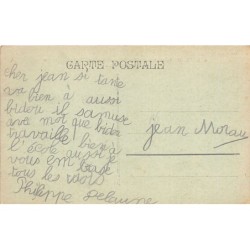 CARTE POSTALE
cher jean si tante
va bien à aussi
bideri il samuse
ava moi que bidri
travaille bien à
l'école aussi je
vous embrasse
tous les
Philippe Delaune
jean Morau